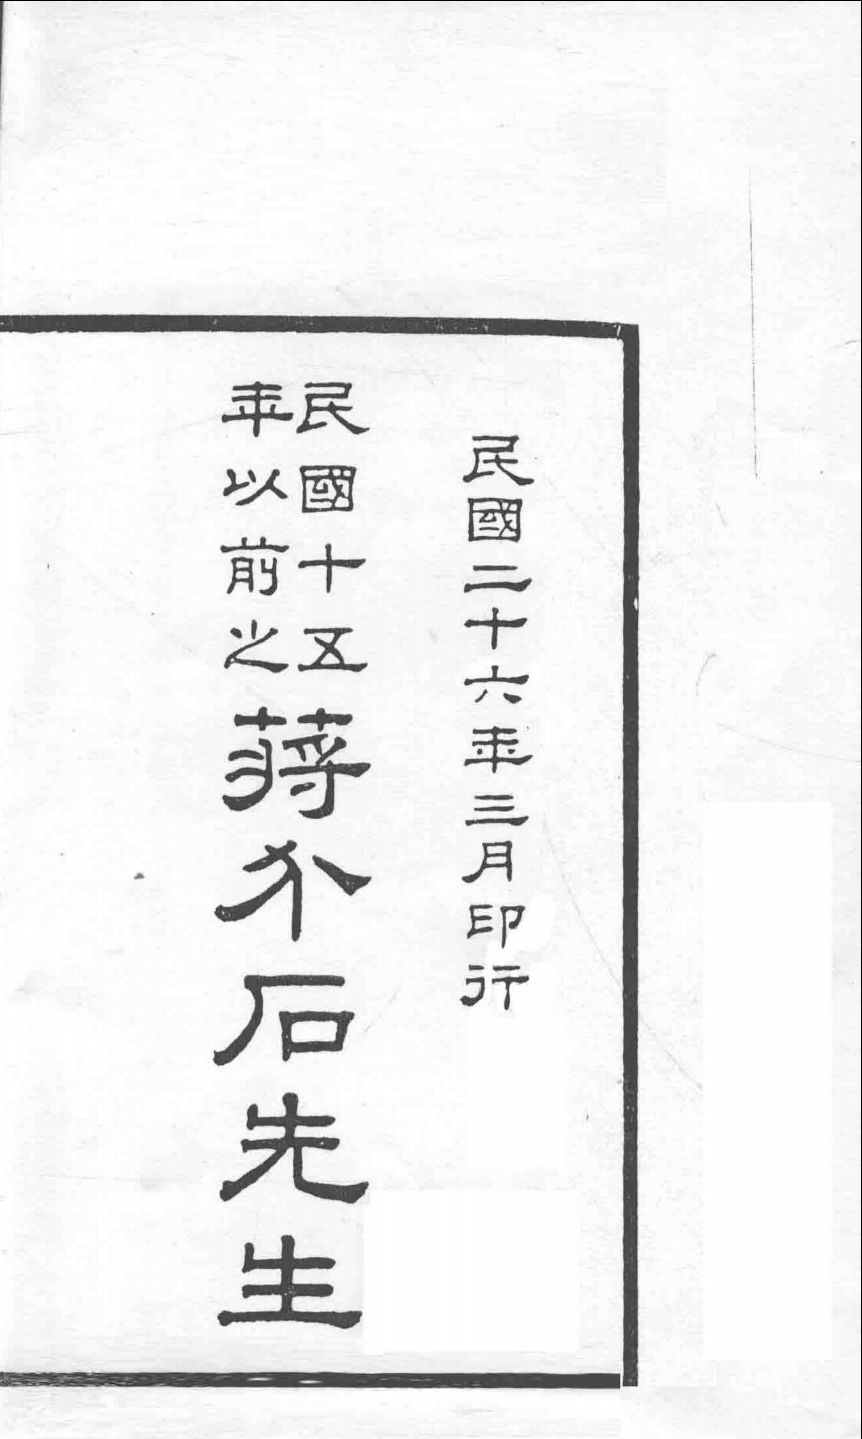 民國二十六年三月印行
民國十五
年以前之
蔣介石先生